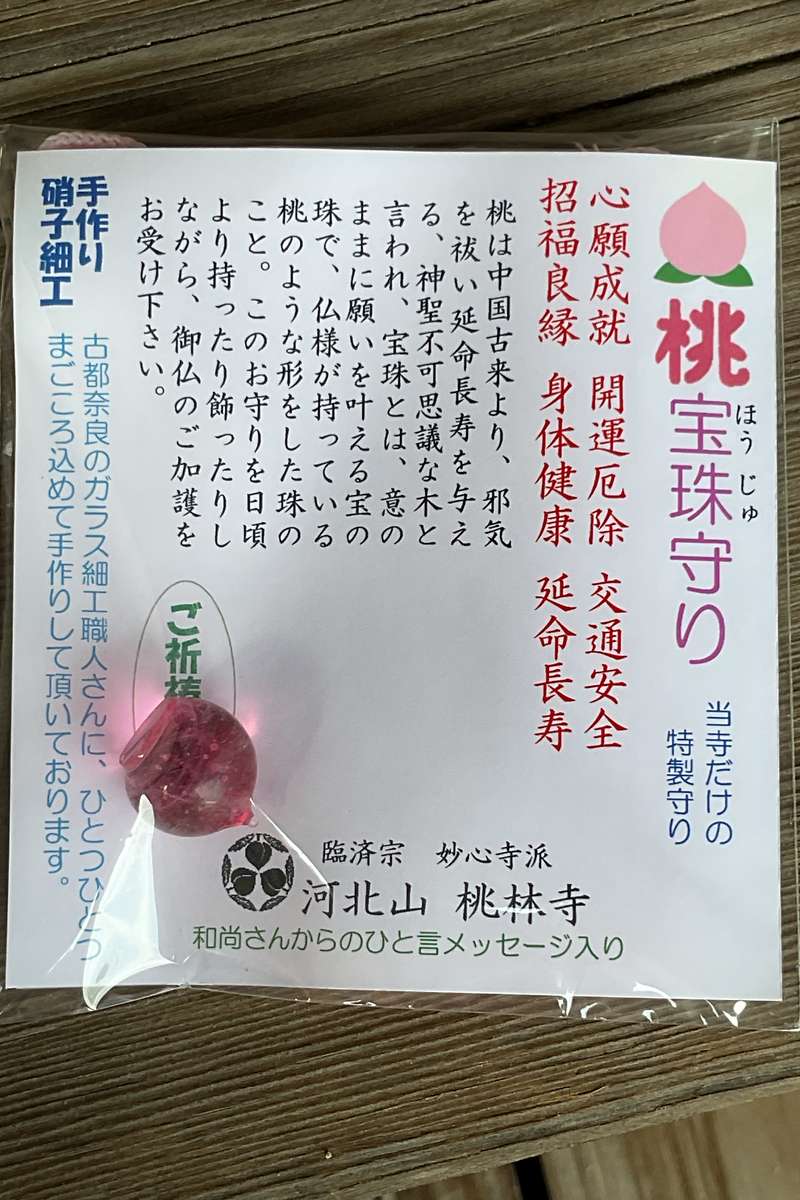 桃宝珠守り
ほうじゅ
当寺だけの
特製守り
心願成就 開運厄除 交通安全
招福良縁 身体健康 延命長寿
桃は中国古来より、邪気
を祓い延命長寿を与え
る、神聖不可思議な木と
言われ、宝珠とは、意の
ままに願いを叶える宝の
珠で、仏様が持っている
桃のような形をした珠の
こと。このお守りを日頃
より持ったり飾ったりし
ながら、御仏のご加護を
お受け下さい。
手作り
硝子細工
古都奈良のガラス細工職人さんに、ひとつひとつ
まごころ込めて手作りして頂いております。
ご祈
臨済宗 妙心寺派
河北山 桃林寺
和尚さんからのひと言メッセージ入り